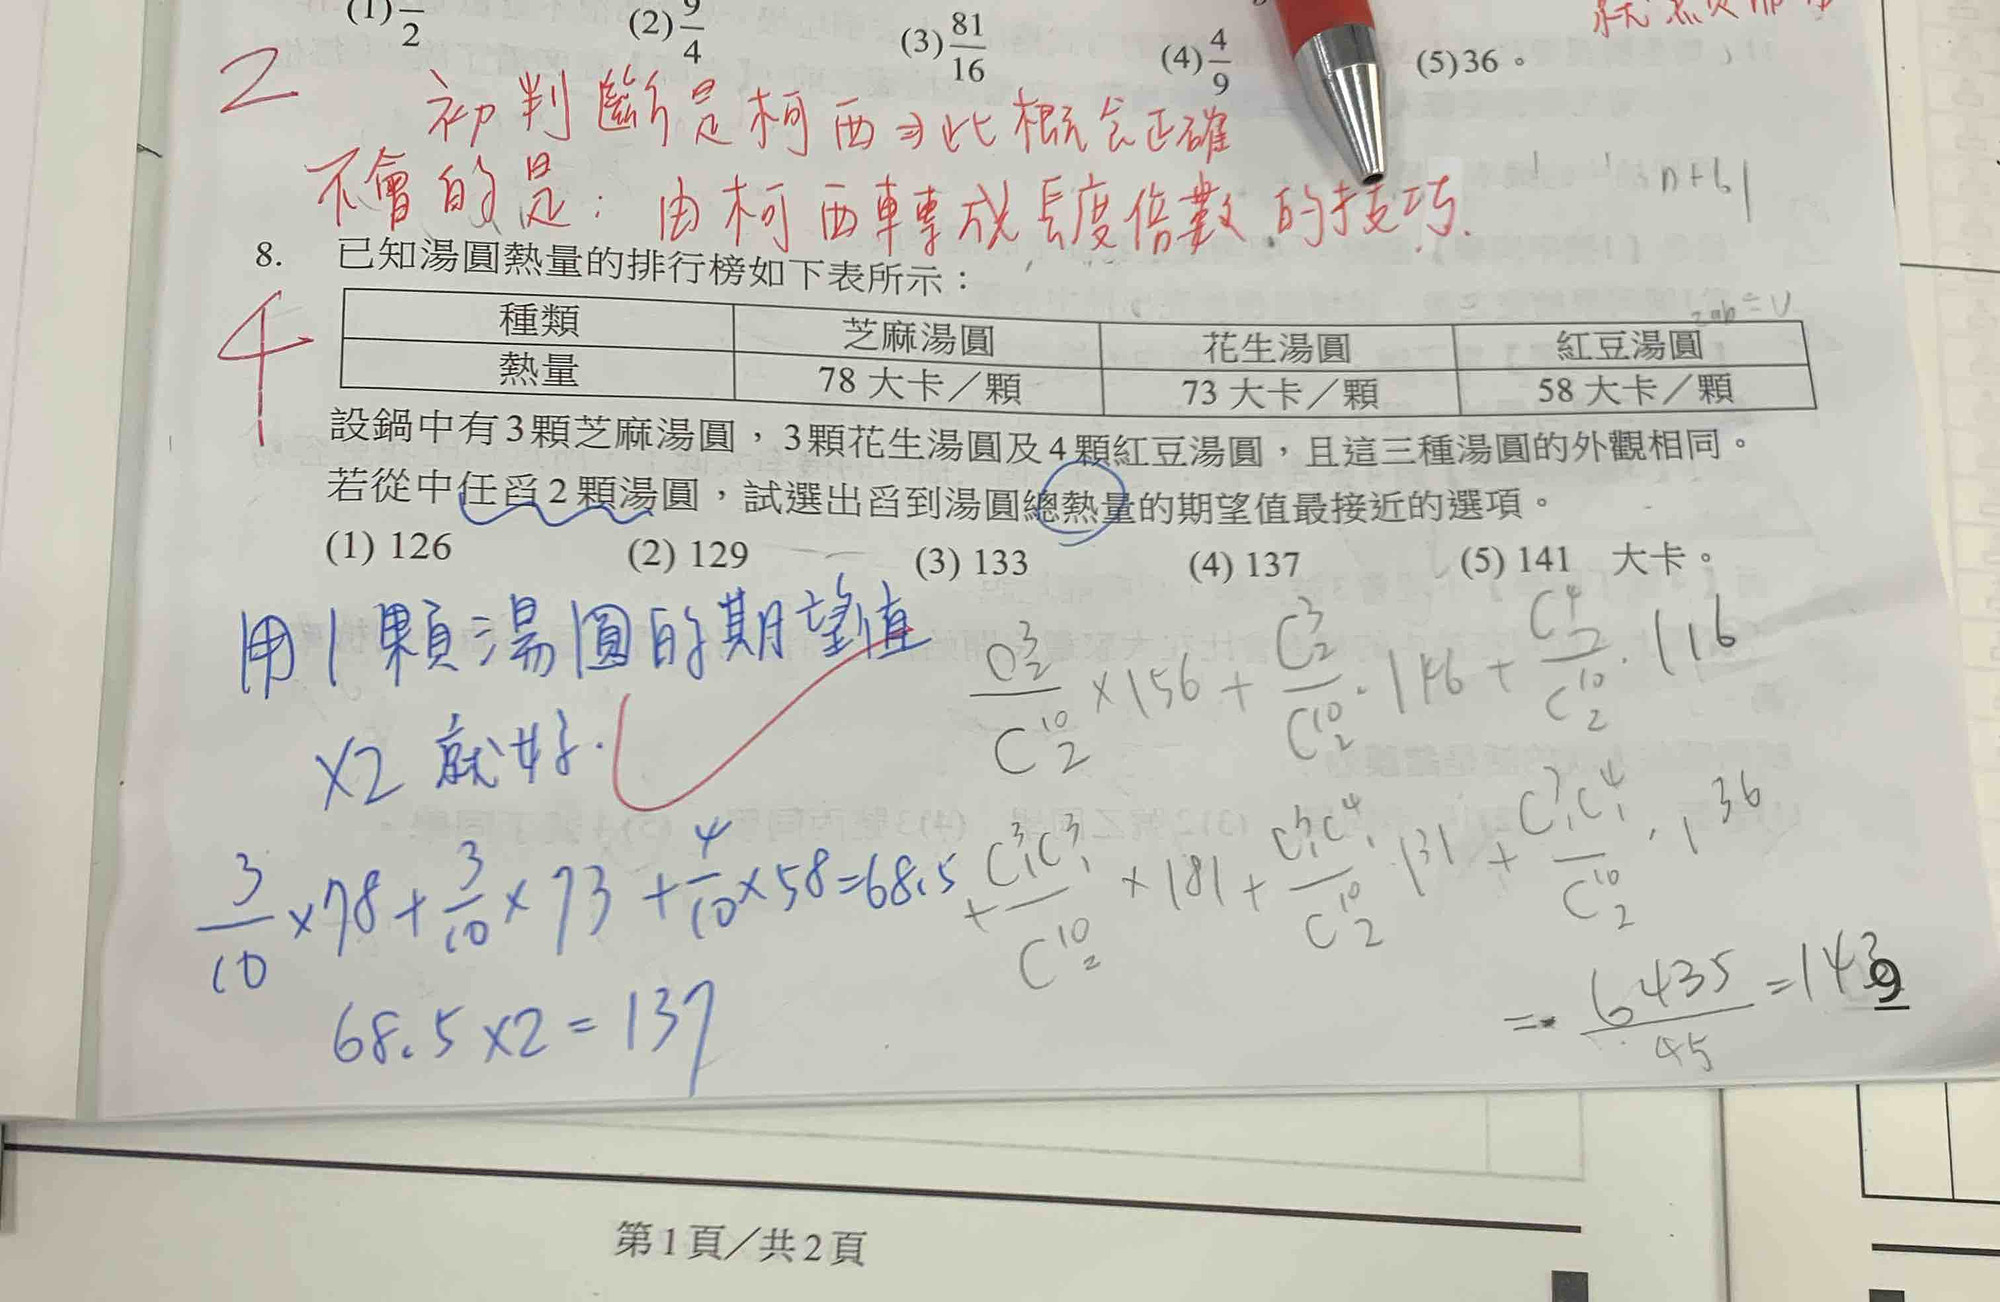 (1) /2 (2) 9/4 (3) 81/16 (4) 4/9 (5) 36。
2
初判斷是柯西⇒此概念正確
不會的是：由柯西轉成長度倍數的技巧.
n+6
2ab=
8. 已知湯圓熱量的排行榜如下表所示：
4
種類 芝麻湯圓 花生湯圓 紅豆湯圓
熱量 78 大卡／顆 73 大卡／顆 58 大卡／顆
設鍋中有3顆芝麻湯圓，3顆花生湯圓及4顆紅豆湯圓，且這三種湯圓的外觀相同。
若從中任舀2顆湯圓，試選出舀到湯圓總熱量的期望值最接近的選項。
(1) 126 (2) 129 (3) 133 (4) 137 (5) 141 大卡。
用1顆湯圓的期望值
×2 就好.
3/10 ×78 + 3/10 × 73 + 4/10 ×58 = 68.5
68.5 ×2 = 137
C³₂/C¹⁰₂ ×156 + C³₂/C¹⁰₂ · 146 + C⁴₂/C¹⁰₂ · 116
+ C³₁C³₁/C¹⁰₂ ×181 + C³₁C⁴₁/C¹⁰₂ · 131 + C³₁C⁴₁/C¹⁰₂ · 136
= 6435/45 = 143
第1頁／共2頁